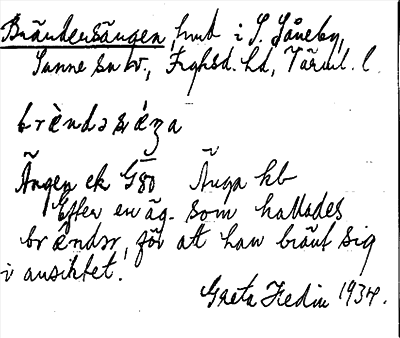 Brändersängen, hmd i S. Såneby,
Sunne sn tv., Fryksd. hd, Värml. l.
brὲndəsǽŋa
Ängen ek G80 Änga kb
Efter en äg. som kallades
brændər, för att han bränt sig
i ansiktet.
Greta Hedin 1934.